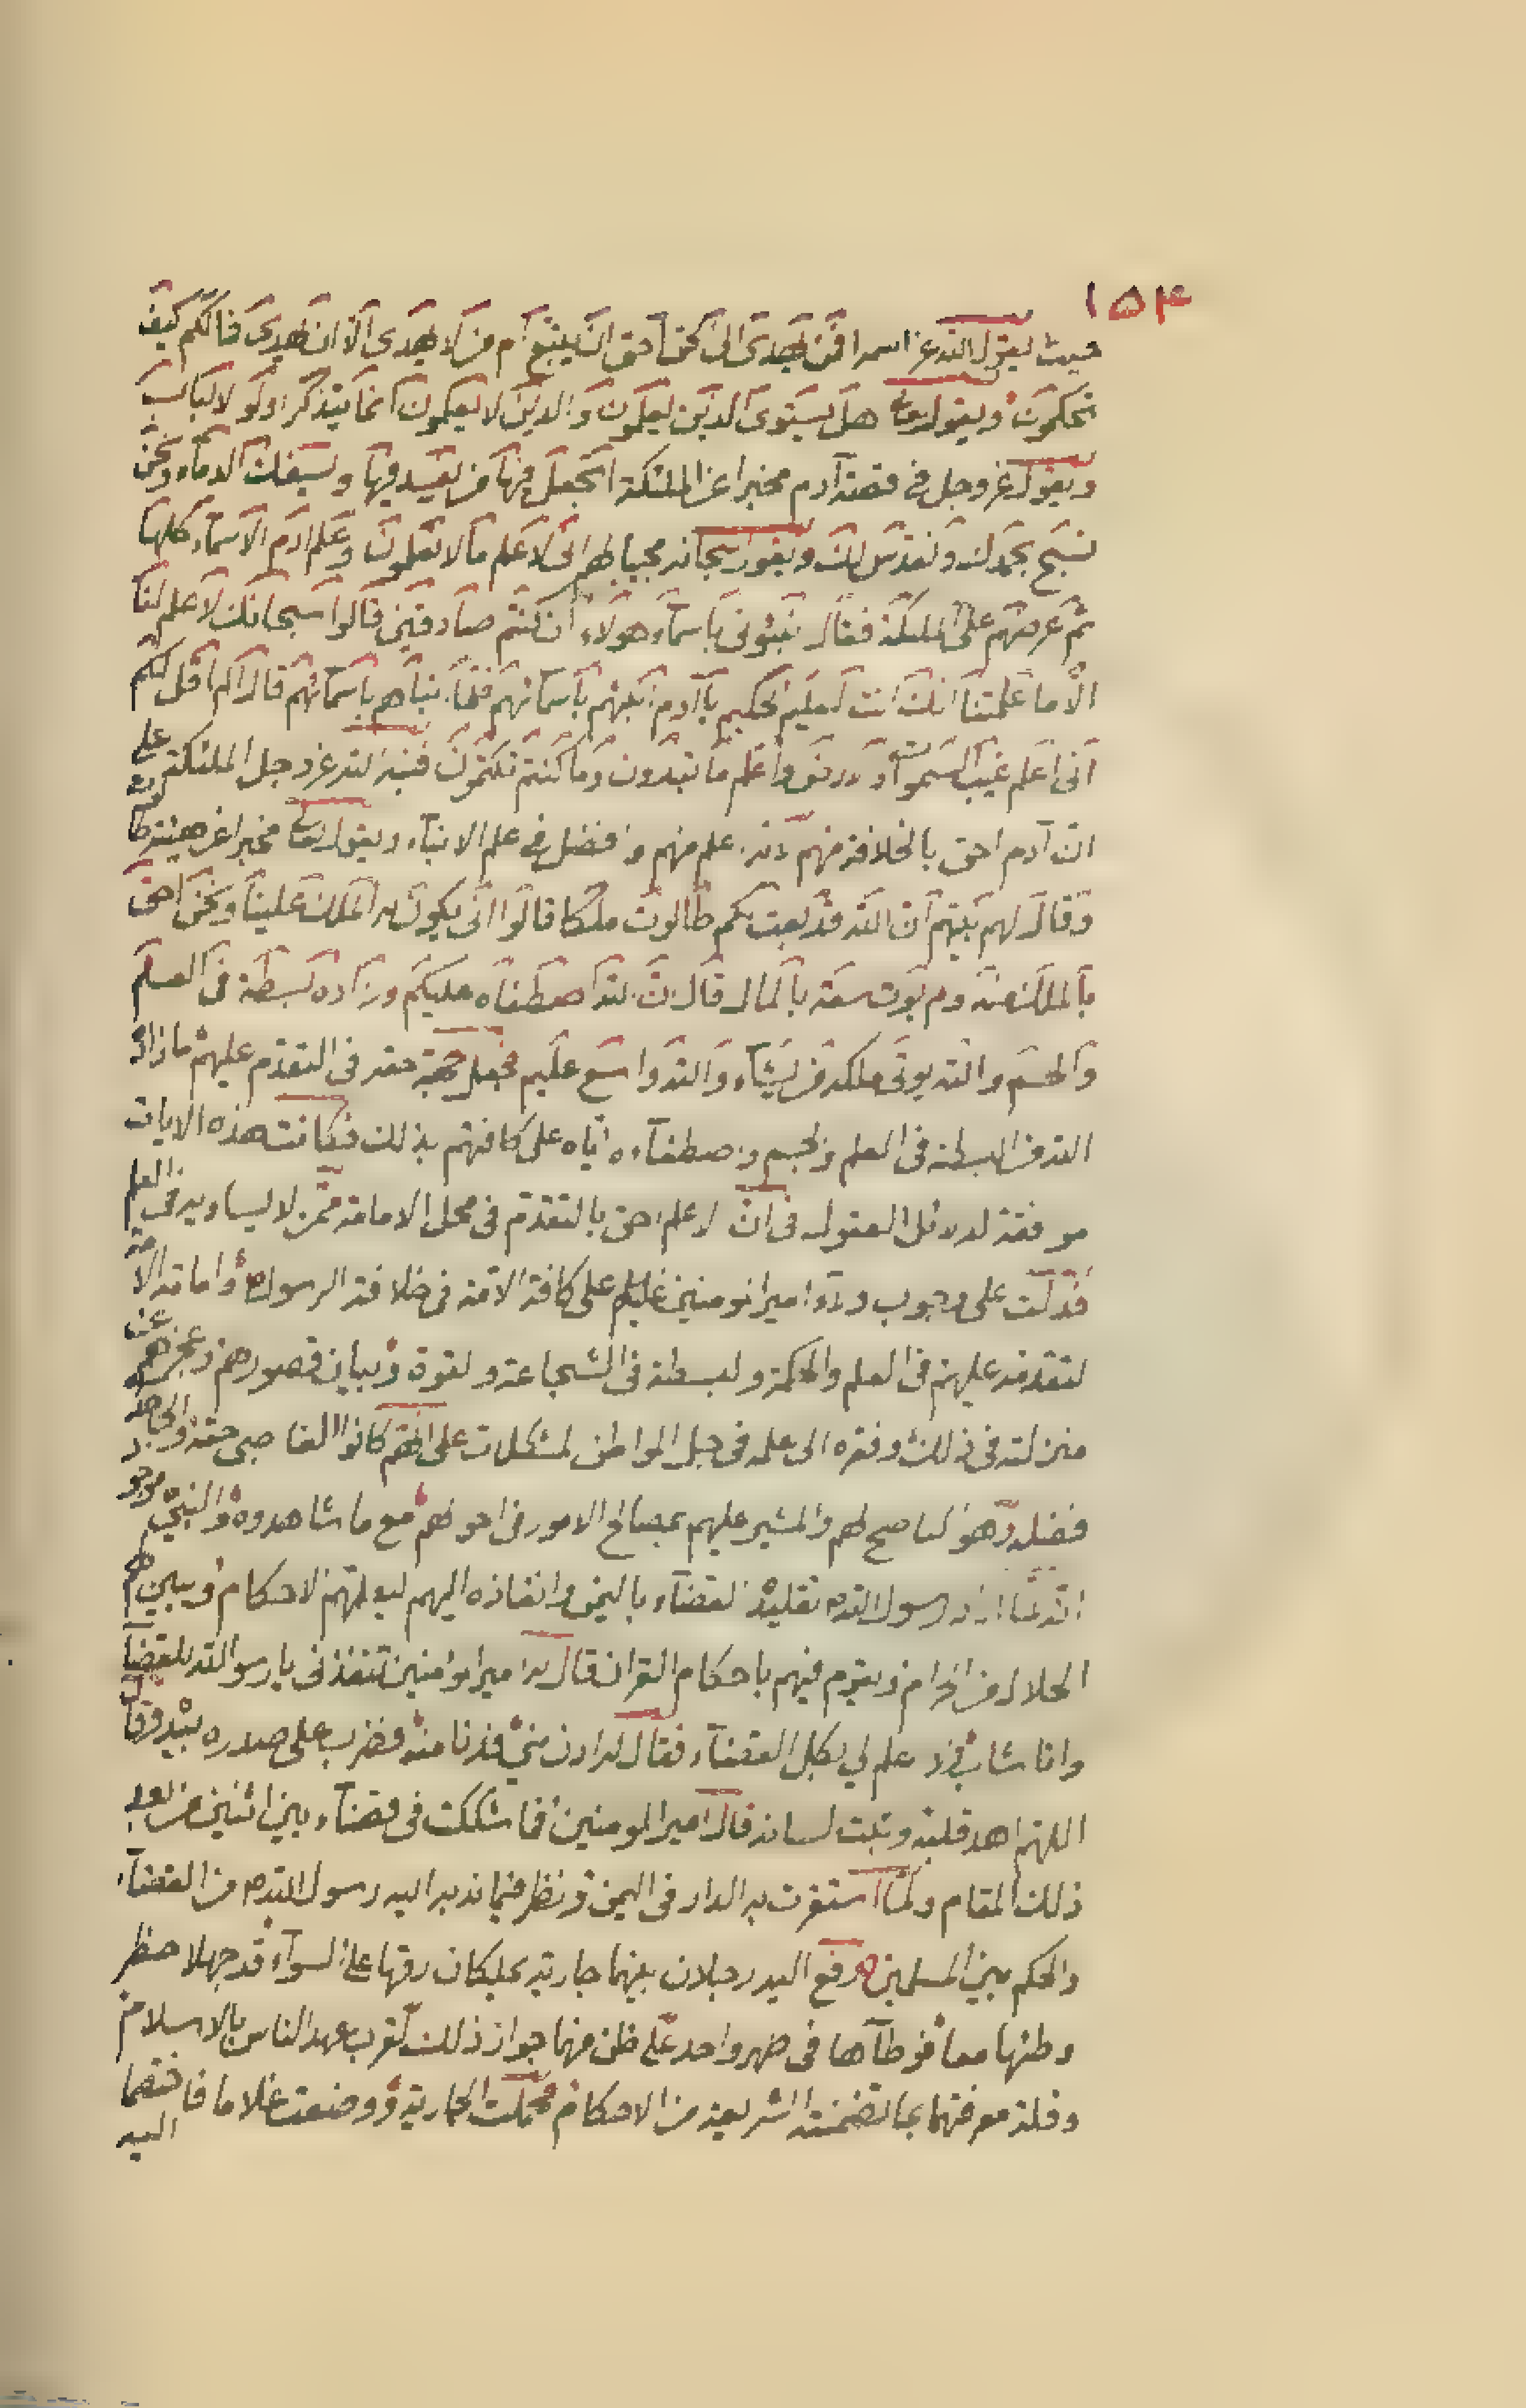 ١٥۴
حيث يقول الله عز اسمه افمن يهدى الى الحق احق ان يتبع ام من لا يهدى الا ان يهدى فما لكم كيف
تحكمون و يقول تعالى هل يستوى الذين يعلمون والذين لا يعلمون انما يتذكر اولو الالباب
ويقول عز وجل فى قصة آدم مخبرا عن الملئكة اتجعل فيها من يفسد فيها ويسفك الدماء ونحن
نسبح بحمدك ونقدس لك ويقول سبحانه مجيبا لهم انى اعلم ما لا تعلمون وعلم ادم الاسماء كلها
ثم عرضهم على الملئكة فقال نبئونى باسماء هولاء ان كنتم صادقين قالوا سبحانك لا علم لنا
الا ما علمتنا انك انت العليم الحكيم يا آدم انبئهم باسمائهم فلما انباهم باسمائهم قال الم اقل لكم
انى اعلم غيب السموات والارض واعلم ما تبدون وما كنتم تكتمون فنبه الله عز وجل الملئكة على
ان آدم احق بالخلافة منهم لانه اعلم منهم وافضل فى علم الانباء ويقول تعالى مخبرا عن قصة طالوت
وقال لهم نبيهم ان الله قد بعث لكم طالوت ملكا قالوا انى يكون له الملك علينا ونحن احق
بالملك منه ولم يوت سعة بالمال قال ان الله اصطفاه عليكم وزاده بسطة فى العلم
والجسم والله يوتى ملكه من يشاء والله واسع عليم فجعل جهة حقه فى التقدم عليهم ما زاده
الله من البسطة فى العلم والجسم واصطفاءه اياه على كافتهم بذلك فكانت هذه الايات
موافقة لدلائل العقول فى ان الاعلم احق بالتقدم فى محل الامامة ممن لا يساويه فى العلم
فدلت على وجوب ولاء امير المومنين عليه على كافة الامة فى خلافة الرسول ص وامامة الامة
لتقدمه عليهم فى العلم والحكمة والبسطة فى الشجاعة والقوة وبيان قصورهم وعجزهم عن
منزلته فى ذلك وفقره الى علمه فى جل المواطن المشكلات على انهم كانوا الغاصبى حقه والجاحد
فضله وهو الناصح لهم والمشير عليهم بمصالح الامور فى احوالهم مع ما شاهدوه والنبى ص موجود
انه لما اراد رسول الله ص تقليده القضاء باليمن وانفاذه اليهم ليعلمهم الاحكام ويبين لهم
الحلال من الحرام ويقوم فيهم باحكام القران قال له امير المومنين تنفذنى يا رسول الله للقضا
وانا شاب ولا علم لى بكل القضاء فقال له ادن منى فدنا منه فضرب على صدره بيده وقال
اللهم اهد قلبه وثبت لسانه قال امير المومنين فما شككت فى قضاء بين اثنين من بعد
ذلك المقام ولما استقرت به الدار فى اليمن ونظر فيما ندبه اليه رسول الله ص من القضاء
والحكم بين المسلمين رفع اليه رجلان بينهما جارية يملكان رقها على السواء قد جهلا حظر
وطئها معا فوطآها فى طهر واحد على ظن منهما جواز ذلك لقرب عهد الناس بالاسلام
وقلة معرفتهما بما تضمنته الشريعة من الاحكام فحملت الجارية ووضعت غلاما فاختصما
اليه